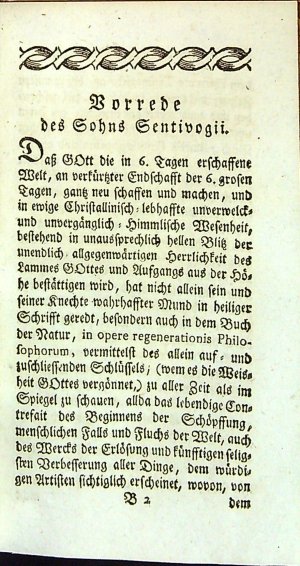 Vorrede
des Sohns Sentivogii.
Daß GOtt die in 6. Tagen erschaffene
Welt, an verkürtzter Endschafft der 6. grosen
Tagen, gantz neu schaffen und machen, und
in ewige Christallinisch-lebhaffte unverwelck-
und unvergänglich-Himmlische Wesenheit,
bestehend in unaussprechlich hellen Blitz der
unendlich allgegenwärtigen Herrlichkeit des
Lammes GOttes und Aufgangs aus der Hö-
he bestättigen wird, hat nicht allein sein und
seiner Knechte wahrhaffter Mund in heiliger
Schrifft geredt, besondern auch in dem Buch
der Natur, in opere regenerationis Philo-
sophorum, vermittelst des allein auf- und
zuschliessenden Schlüssels, (wem es die Weis-
heit GOttes vergönnet,) zu aller Zeit als im
Spiegel zu schauen, allda das lebendige Con-
trefait des Beginnens der Schöpffung,
menschlichen Falls und Fluchs der Welt, auch
des Wercks der Erlösung und künfftigen selig-
sten Verbesserung aller Dinge, dem würdi-
gen Artisten sichtiglich erscheinet, wovon, von
B 2 dem